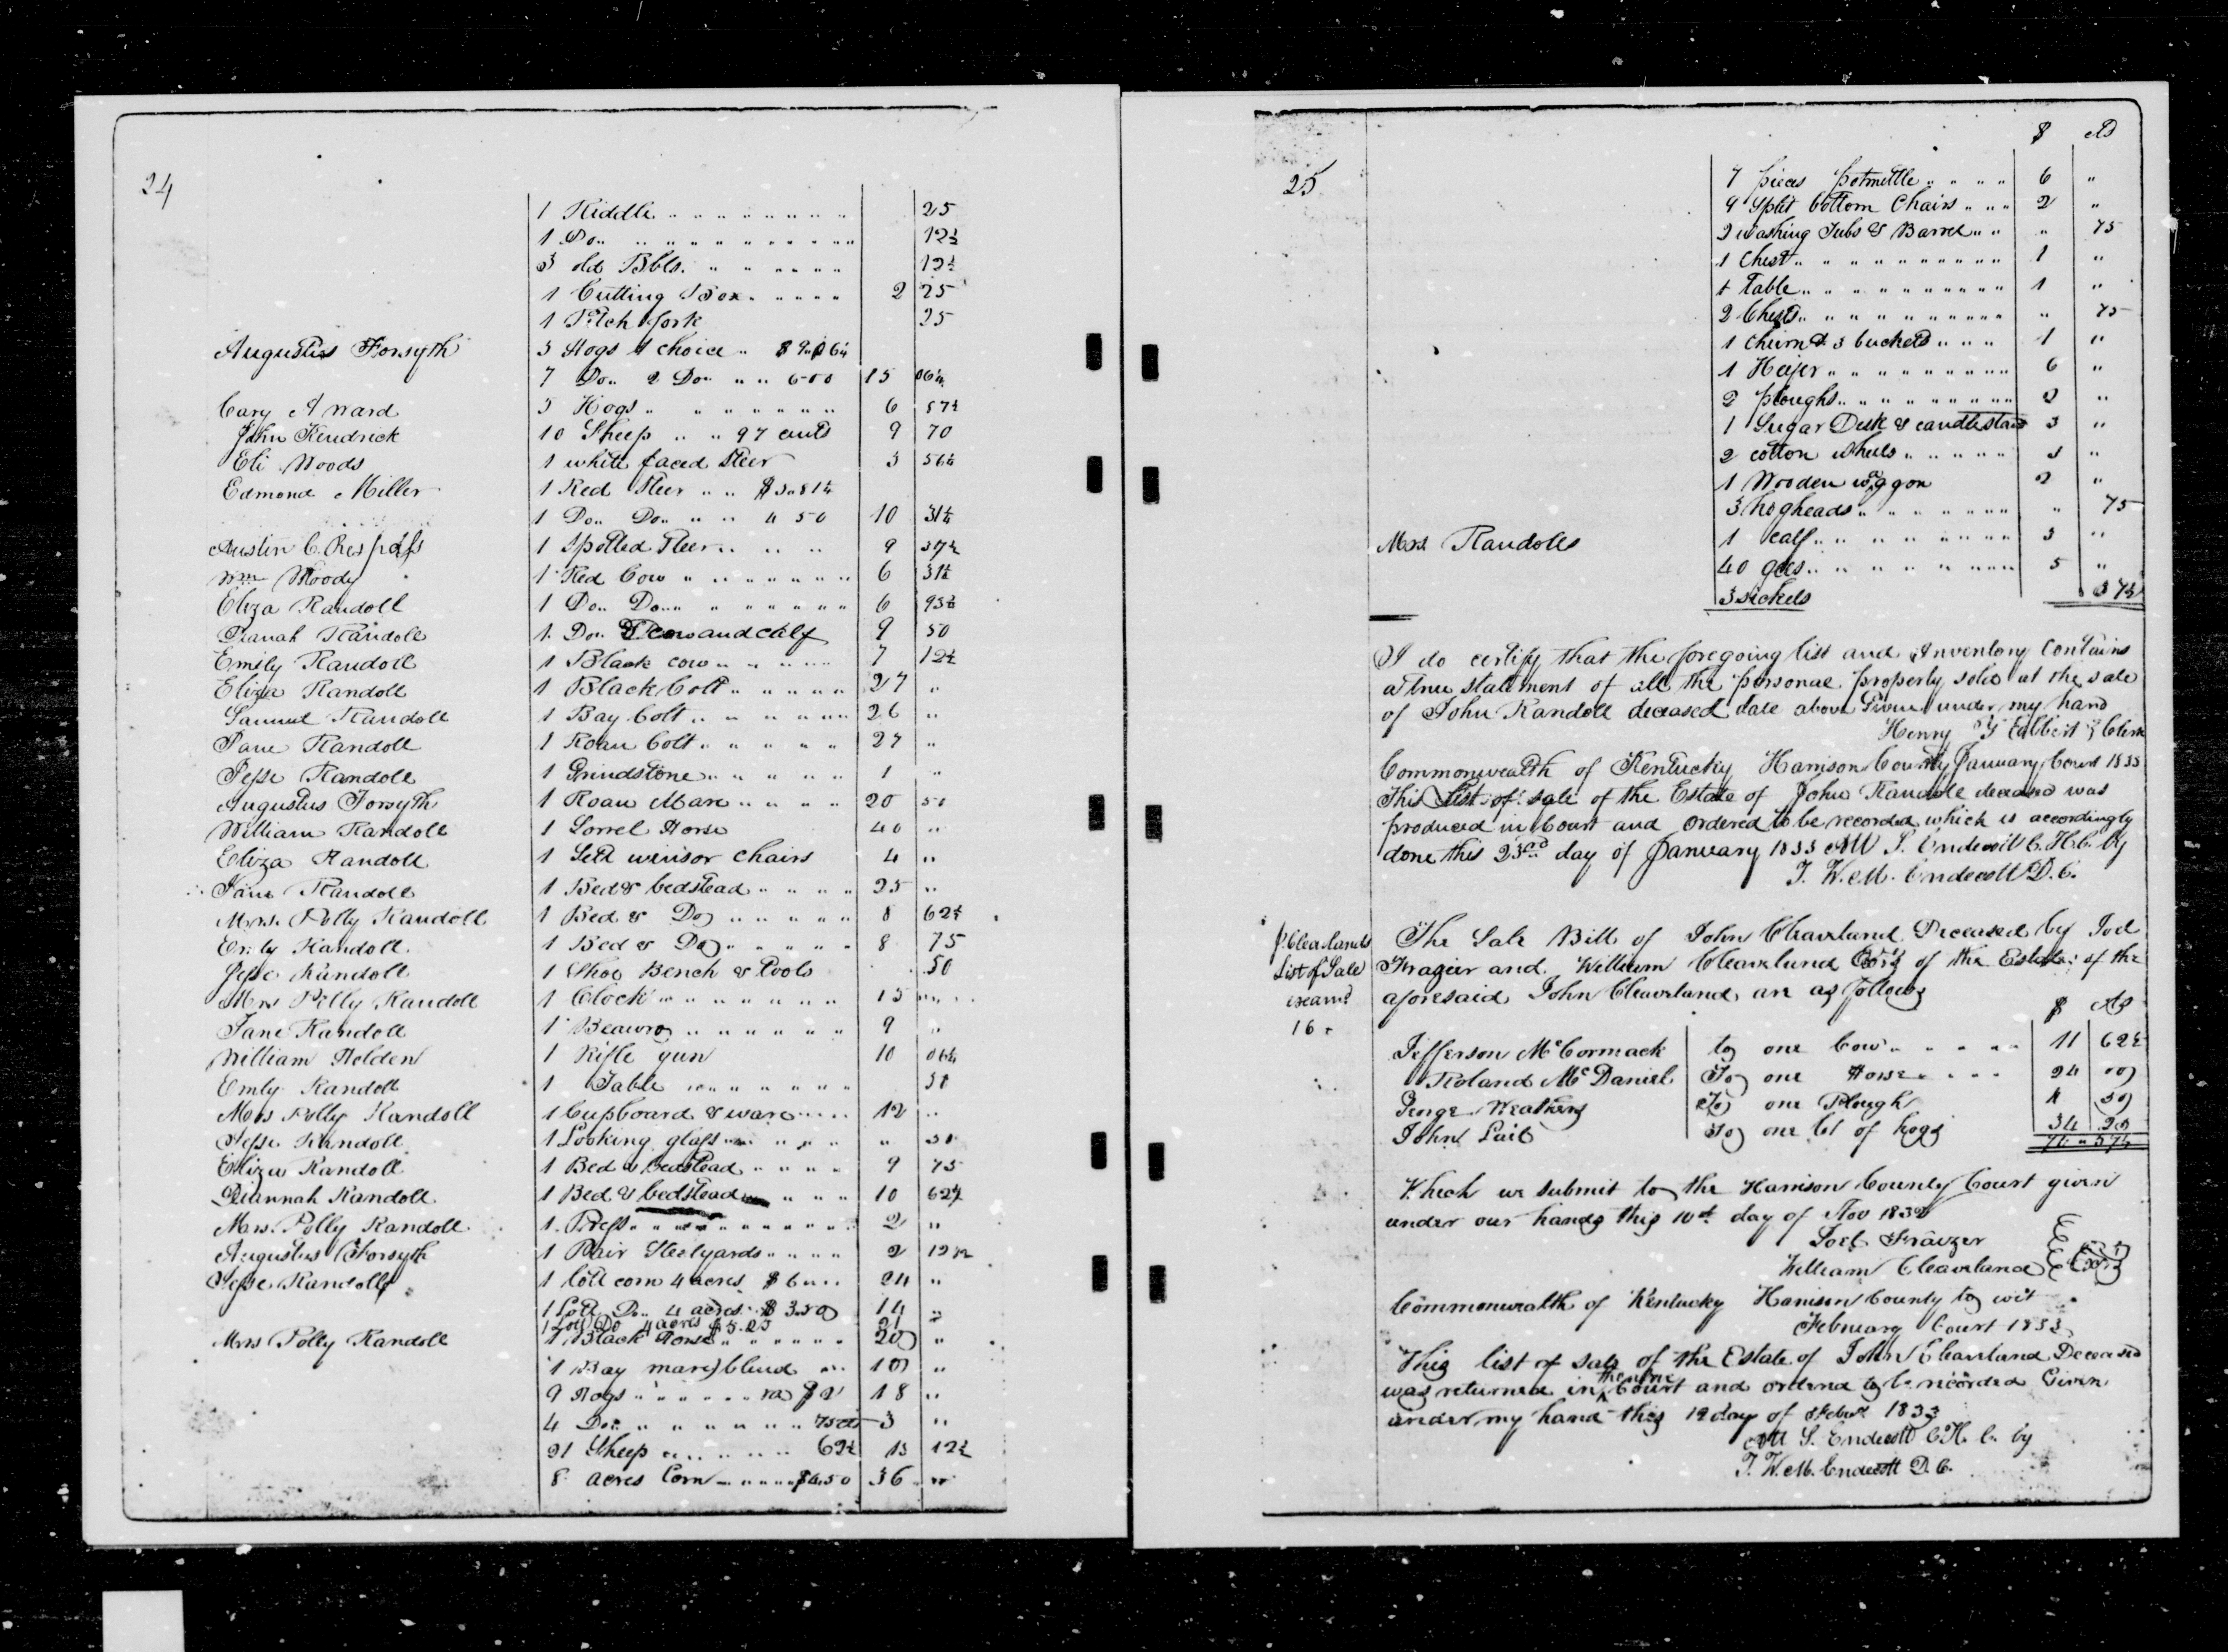 24
1 Riddle 25
1 Do 12½
3 old Bbls. 12½
1 Cutting Box 2 25
1 Pitch fork 25
Augustus Forsyth 3 Hogs 1 choice $9.06¼
7 Do 2 Do 6.00 15 06¼
Cary A Ward 5 Hogs 6 87½
John Kendrick 10 Sheep 97 cents 9 70
Eli Woods 1 white faced Steer 3 56¼
Edmond Miller 1 Red Steer $5.81¼
1 Do Do 4 50 10 31¼
Austin C. Respess 1 Spotted Steer 9 37½
Wm Moody 1 Red Cow 6 31¼
Eliza Randoll 1 Do Do 6 93¾
Randoll 1 Do cow and calf 9 50
Emily Randoll 1 Black cow 7 12½
Eliza Randoll 1 Black Colt 27 "
Samuel Randoll 1 Bay Colt 26 "
Jane Randoll 1 Roan Colt 27 "
Jesse Randoll 1 Grindstone 1 "
Augustus Forsyth 1 Roan Mare 20 50
William Randoll 1 Sorrel Horse 40 "
Eliza Randoll 1 Sett winsor chairs 4 "
Jane Randoll 1 Bed & bedstead 25 "
Mrs. Polly Randoll 1 Bed & Do 8 62½
Emily Randoll 1 Bed & Do 8 75
Jesse Randoll 1 Shoe Bench & Tools 50
Mrs Polly Randoll 1 Clock 15 "
Jane Randoll 1 Beauro 9 "
William Holden 1 Rifle gun 10 06¼
Emly Randoll 1 Table 50
Mrs Polly Randoll 1 Cupboard & ware 12 "
Jesse Randoll 1 Looking glass " 50
Eliza Randoll 1 Bed & bedstead 9 75
Randoll 1 Bed & bedstead 10 62½
Mrs. Polly Randoll 1 Press 2 "
Augustus Forsyth 1 Pair Steelyards 2 12½
Jesse Randoll 1 lott corn 4 acres $6 24 "
1 Lott Do 4 acres $3.50 14 "
1 Lott Do 4 acres $5.25 21 "
Mrs Polly Randoll 1 Black Horse 20 "
1 Bay mare blind 10 "
9 Hogs $2 18 "
4 Do 75 cts 3 "
21 Sheep 62½ 13 12½
8 acres Corn $4.50 36 "
25
$ cts
7 pieces potmettle 6 "
9 Split bottom Chairs 2 "
2 washing Tubs & Barrel " 75
1 Chest 1 "
1 Table 1 "
2 Chests " 75
1 churn & 3 buckets 1 "
1 Heifer 6 "
2 ploughs 2 "
1 Sugar Desk & candlestand 3 "
2 cotton wheels 3 "
1 Wooden waggon 2 "
3 hogheads " 75
Mrs. Randoll 1 calf 3 "
40 gees 5 "
3 sickels 37½
I do certify that the foregoing list and Inventory contains
a true statement of all the personal property sold at the sale
of John Randoll deceased date above Given under my hand
Henry Talbert Clerk
Commonwealth of Kentucky Harrison County January Court 1833
This List of sale of the Estate of John Randoll deceased was
produced in Court and ordered to be recorded which is accordingly
done this 23rd day of January 1833 Att S. Endecott C.H.C. by
T. W. M. Endecott D.C.
J. Cleavlands
List of Sale
exam'd
16
The Sale Bill of John Cleaveland Deceased by Joel
Frazier and William Cleaveland Exrs of the Estate of the
aforesaid John Cleaveland are as follows
$ cts
Jefferson McCormack to one Cow 11 62½
Roland McDaniel To one Horse 24 00
George Weathers To one Plough 4 50
John Lail To one lot of hogs 34 25
Which we submit to the Harrison County Court given
under our hands this 10th day of Nov 1832
Joel Frazer
William Cleaveland Exrs
Commonwealth of Kentucky Harrison County to wit
February Court 1833
This list of sale of the Estate of John Cleaveland Deceased
was returned in Court and ordered to be recorded Given
under my hand this 12 day of Feby 1833
Att S. Endecott C.H.C. by
T. W. M. Endecott D.C.